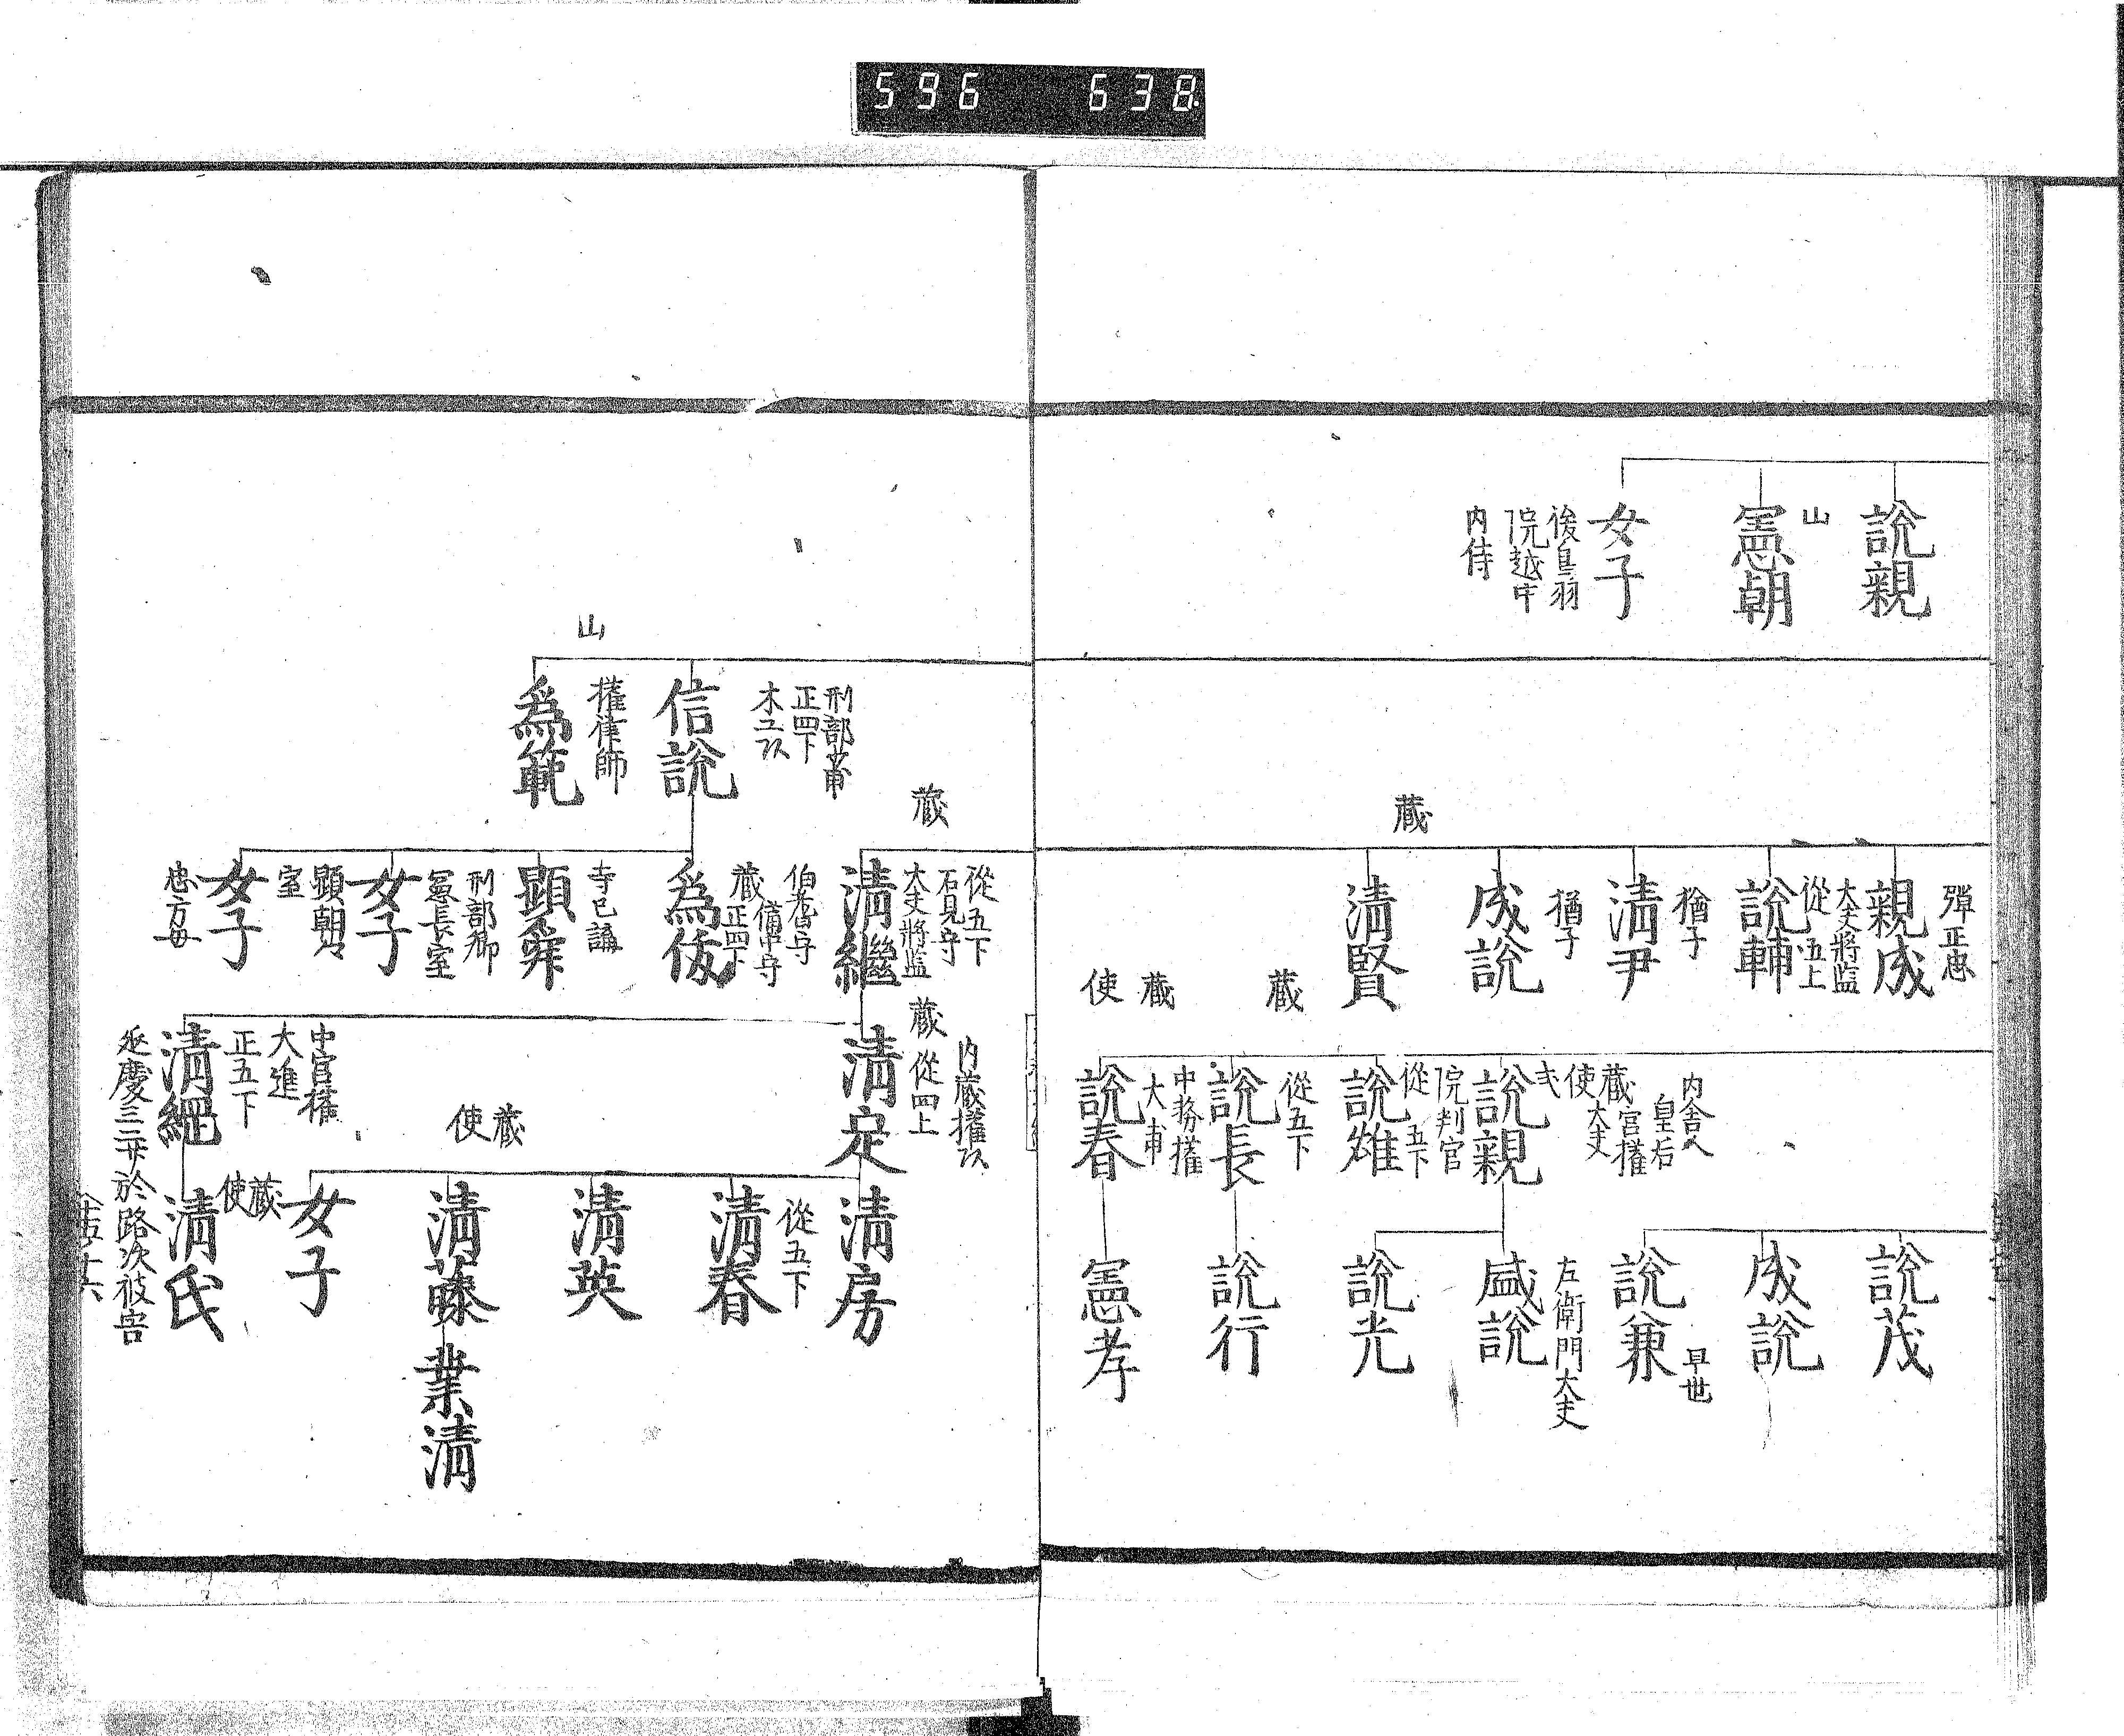 596 638
説親
山
憲朝
女子
後鳥羽
院越中
内侍
彈正忠
親成
大夫將監
從五上
説輔
猶子
清尹
猶子
成説
藏
清賢
説茂
成説
早世
説兼
内舎人
皇后
宮權
大夫
藏
使
説親
左衛門大夫
盛説
説光
院判官
從五下
説雄
藏
從五下
説長
説行
藏
使
中務權
大甫
説春
憲孝
刑部少甫
正四下
木工頭
信説
山
權律師
為範
藏
從五下
石見守
大夫將監
清繼
伯耆守
備中守
藏
正四下
為俊
寺已講
顕舜
刑部卿
憲長室
女子
顕朝
室
女子
忠方母
内藏權頭
藏
從四上
清定
清房
從五下
清春
清英
藏
使
清藤
業清
女子
中宮權
大進
正五下
清繩
延慶三二廿於路次被害
藏
使
清氏